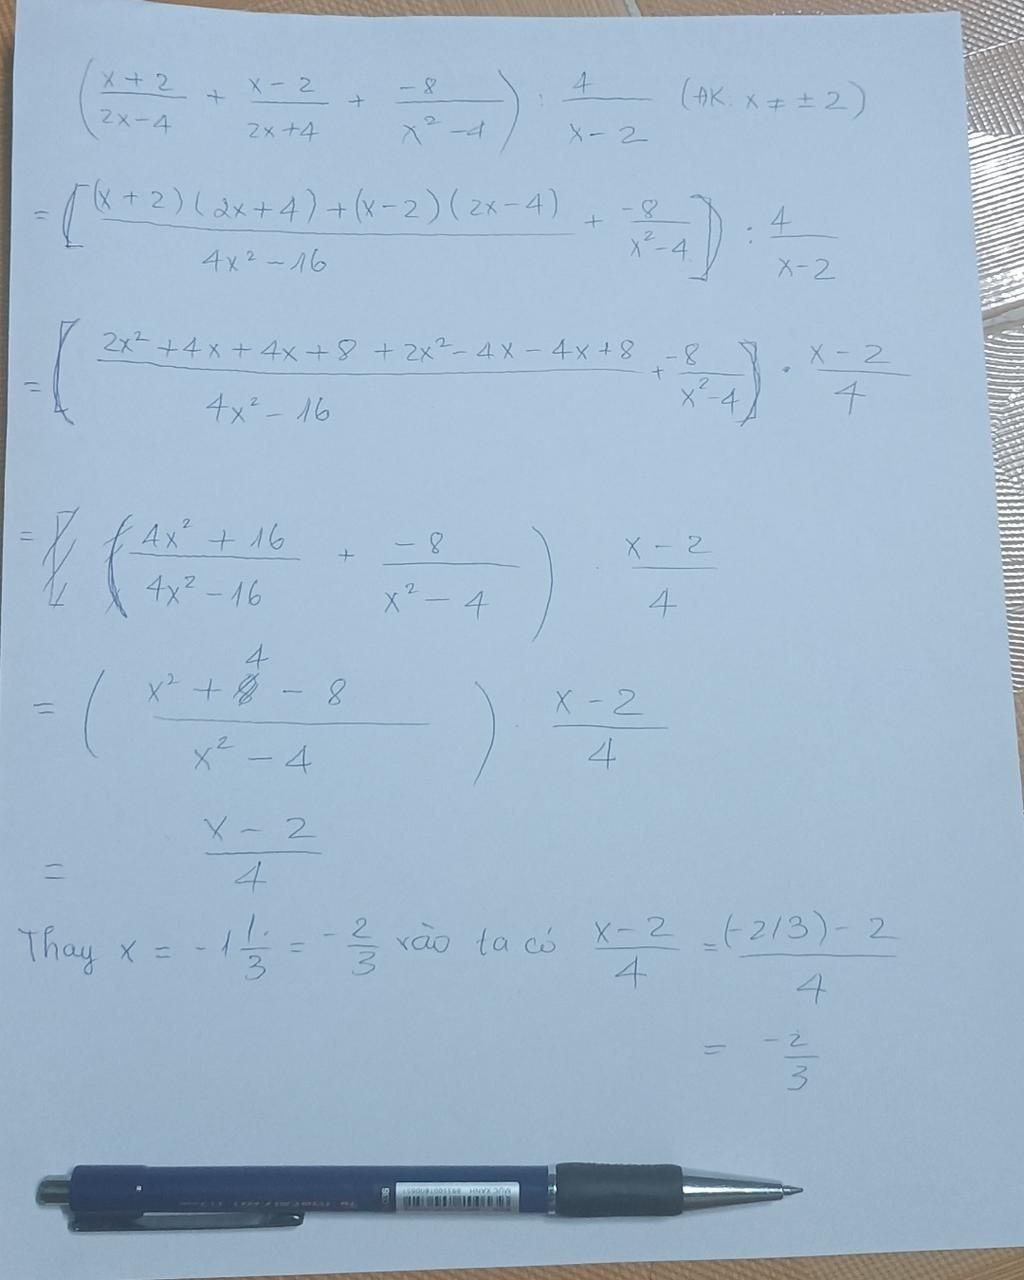 (x+2/2x-4 + x-2/2x+4 + -8/x²-4) : 4/x-2 (ĐK: x ≠ ±2)
= [(x+2)(2x+4)+(x-2)(2x-4)/4x²-16 + -8/x²-4] : 4/x-2
= [2x²+4x+4x+8+2x²-4x-4x+8/4x²-16 + -8/x²-4] . x-2/4
= (4x²+16/4x²-16 + -8/x²-4) . x-2/4
= (x²+4-8/x²-4) . x-2/4
= x-2/4
Thay x = -1 1/3 = -2/3 vào ta có x-2/4 = (-2/3)-2/4
= -2/3
MỰC XANH